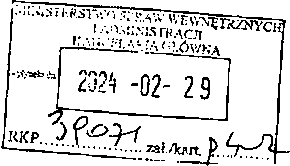 MINISTERSTWO SPRAW WEWNĘTRZNYCH
I ADMINISTRACJI
KANCELARIA GŁÓWNA
2024 -02- 29
RKP 39071 zał./kart.